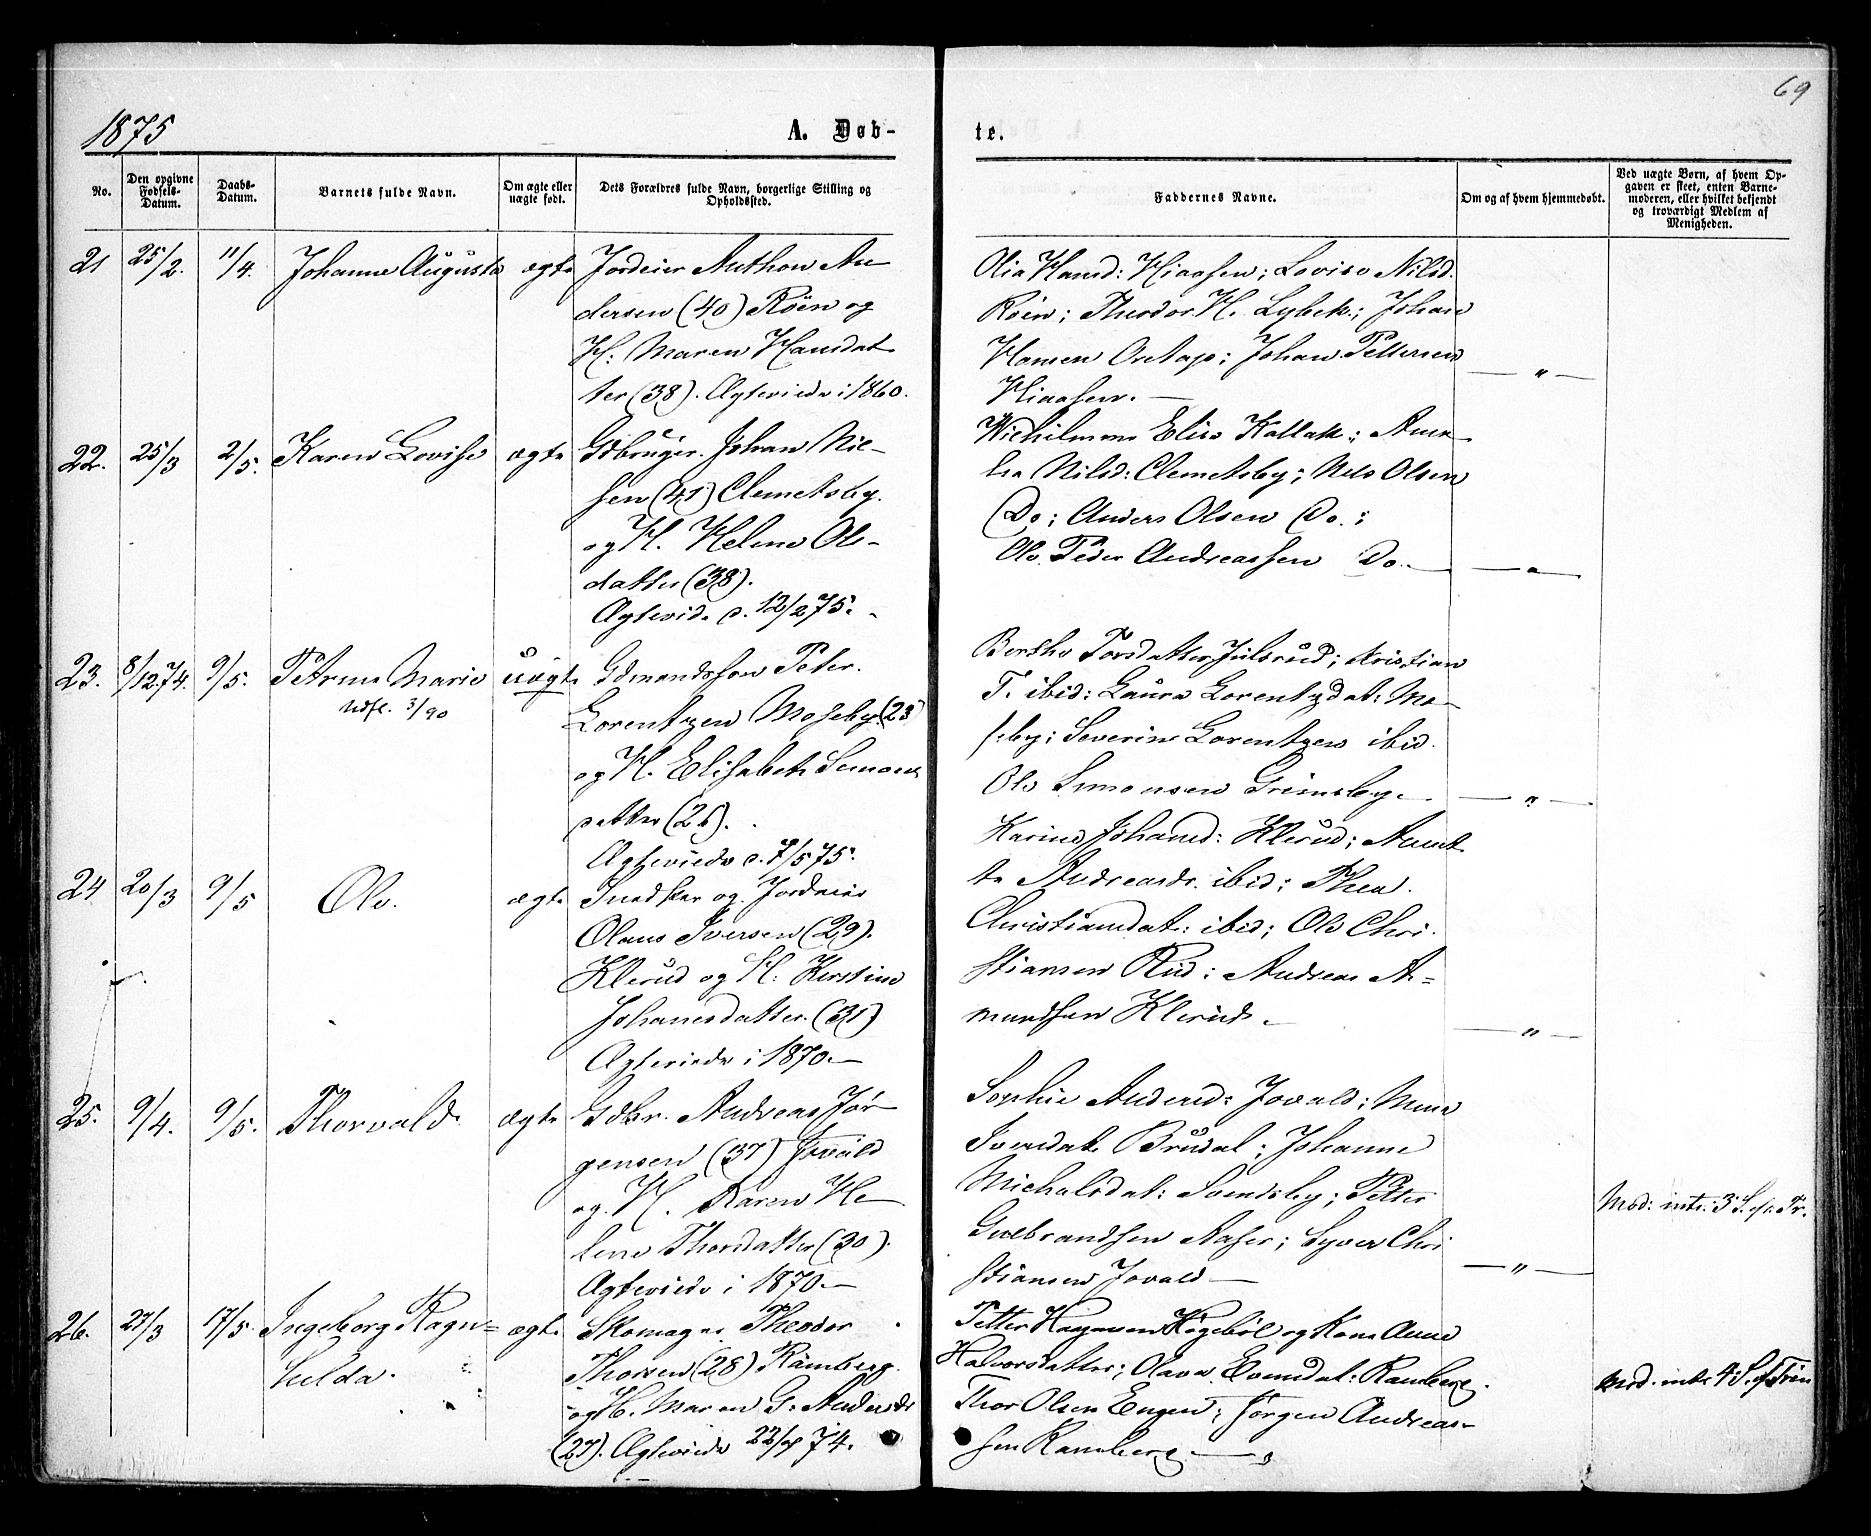 69
1875
A. Døb-
te.
No.
Den opgivne Fødsels-Datum.
Daabs-Datum.
Barnets fulde Navn.
Om ægte eller uægte født.
Dets Forældres fulde Navn, borgerlige Stilling og Opholdssted.
Faddernes Navne.
Om og af hvem hjemmedøbt.
Ved uægte Børn, af hvem Opgaven er skeet, enten Barnemoderen, eller hvilket bekjendt og troværdigt Medlem af Menigheden.
21 25/2. 11/4. Johanne Augusta ægte Jordeier Anthon An
dersen (40) Röen og
H. Maren Hansdat
ter (38). Ægteviede i 1860.
Olia Hansd: Hiaasen; Lovise Nilsd.
Röen; Theodor H. Lybek; Johan
Hansen ; Johan Pettersen
Hiaasen. —
— " —
22. 25/3 2/5. Karen Lovise ægte Gdbruger. Johan Niel-
sen (41) Clemetsby.
og H. Helene Ols-
datter (38).
Ægtevid. d. 12/2 75.
Elise Kollak;
Nilsd: Clemetsby; Nils Olsen
Do; Anders Olsen Do.;
Ole Peder Andreassen Do. —
— " —
23. 8/12.74. 9/5. Petrine Marie uægte Gdmandssøn Peter
Udfl. 3/90
Lorentzen Moseby (23)
og H. Elisabeth Simons
datter (26).
Ægteviede d. 9/5 75.
Berthe Torsdatter Julsrud; Kristian
T. ibid: Laura Lorentzdat: Mo-
seby; Severin Lorentzen ibid.
Ole Simensen Grimsby.
— " —
24 20/3 9/5 Ole. ægte Snedker og Jordeier
Olaus Iversen (29).
Klerud og H. Kirstine
Johanesdatter (31)
Ægteviede i 1870. —
Karine Johansd: Klerud; Anet
te Andreasdr. ibid; Thea
Christiansdat: ibid; Ole Chri
stiansen Rud; Andreas A-
mundsen Klerud.
— " —
25. 9/4. 9/5. Thorvald. ægte Gdbr. Andreas Jör
gensen (37) Jovald
og H. Karen He
lene Thorsdatter (30).
Ægteviede i 1870. —
Sophie Andersd: Jovald; Mina
Svendat: Brudal; Johanne
Michalsdat: Svendsby; Petter
Gulbrandsen Aaser; Syver Chri
stiansen Jovald —
— " —
Mod: intr. 3 S. e. Tr.
26. 27/3 17/5. Ingeborg Ragn= ægte Skomager Theodor
hilda.
Thorsen (28) Ramberg
og H. Maren G. Andersdr
(27). Ægteviede 22/ 74.
Petter Högeböl og Kone Anne
Halvorsdatter; Olava Evensdat: Ramberg.
Thor Olsen Engen; Jørgen Andreas-
sen Ramberg. — "
Mod. intr. 4 S. e. Trin